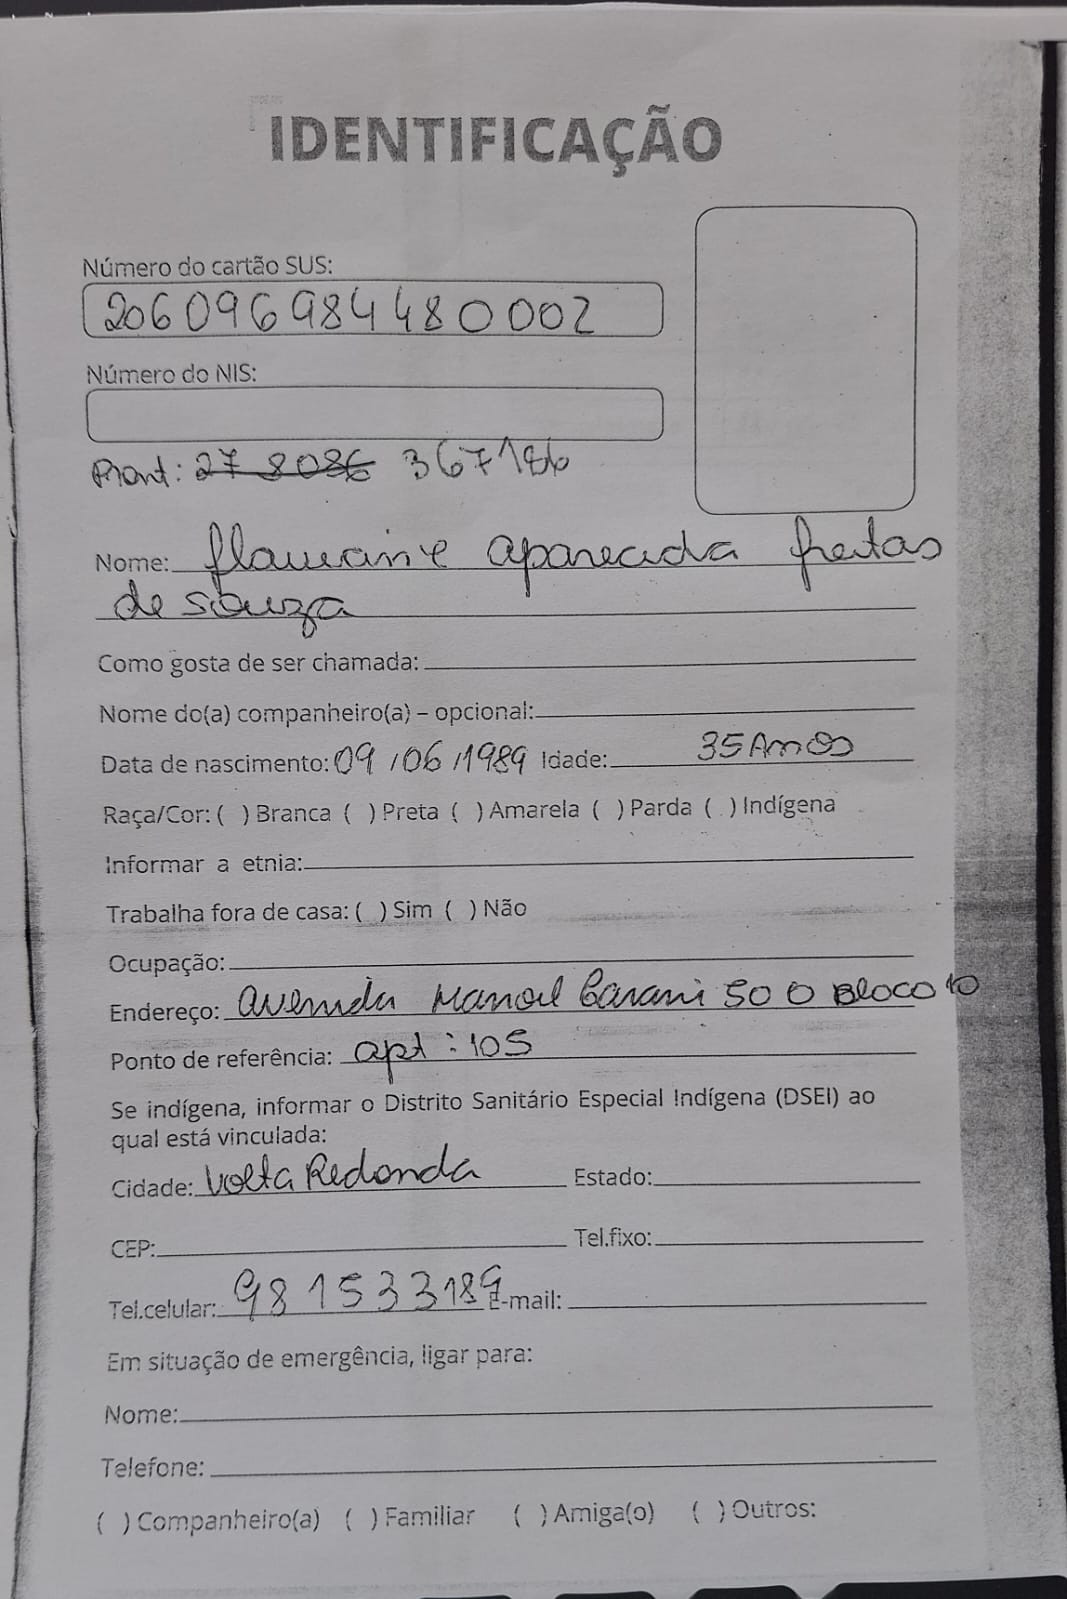 IDENTIFICAÇÃO
Número do cartão SUS:
206096984480002
Número do NIS:
Pront: 278086 367186
Nome: flauciane aparecida freitas
de souza
Como gosta de ser chamada:
Nome do(a) companheiro(a) – opcional:
Data de nascimento: 09/06/1989 Idade: 35 Anos
Raça/Cor: ( ) Branca ( ) Preta ( ) Amarela ( ) Parda ( ) Indígena
Informar a etnia:
Trabalha fora de casa: ( ) Sim ( ) Não
Ocupação:
Endereço: avenida Manoel 500 Bloco 10
Ponto de referência: apt: 105
Se indígena, informar o Distrito Sanitário Especial Indígena (DSEI) ao
qual está vinculada:
Cidade: Volta Redonda Estado:
CEP: Tel.fixo:
Tel.celular: 981533189 E-mail:
Em situação de emergência, ligar para:
Nome:
Telefone:
( ) Companheiro(a) ( ) Familiar ( ) Amiga(o) ( ) Outros: